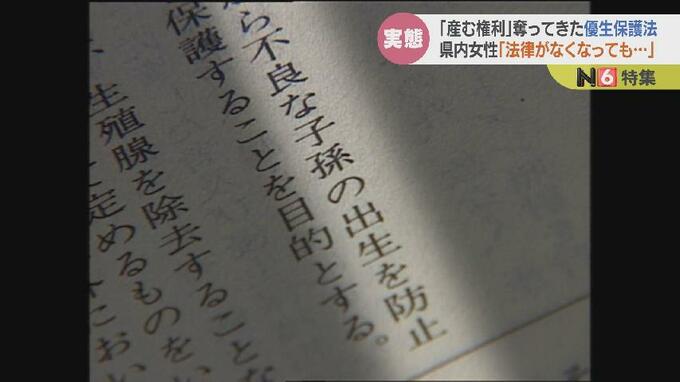 実態
「産む権利」奪ってきた優生保護法
県内女性「法律がなくなっても…」
N6特集
ら不良な子孫の出生を防止
保護することを目的とする。
生殖腺を除去することな
て定めるものをい
におい